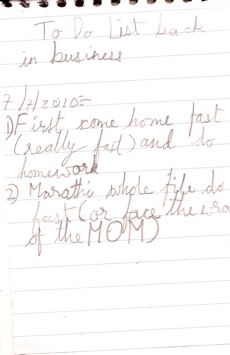 To Do List back
in business
7/7/2010=
1) First come home fast
(really fast) and do
homework
2) Marathi whole file do
fast (or face the wra
of the MOM)